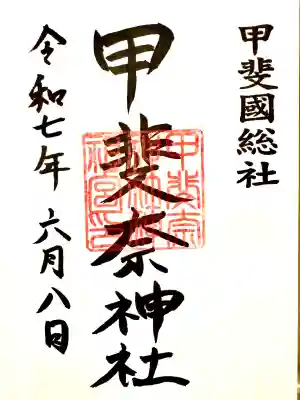 甲斐國総社
甲斐奈神社
令和七年 六月八日